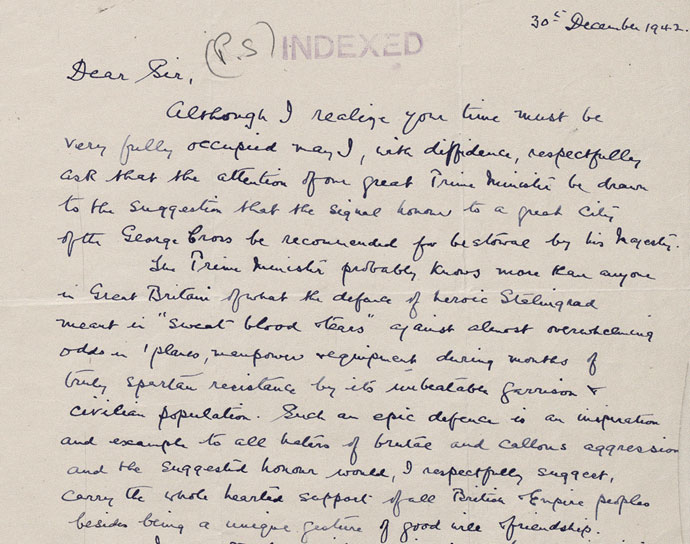 30th December 1942.
(P.S) INDEXED
Dear Sir,
Although I realize your time must be
very fully occupied may I, with diffidence, respectfully
ask that the attention of our great Prime Minister be drawn
to the suggestion that the signal honour to a great City
of the George Cross be recommended for bestowal by his Majesty.
The Prime Minister probably knows more than anyone
in Great Britain of what the defence of heroic Stalingrad
meant in "sweat blood & tears" against almost overwhelming
odds in 'planes, manpower & equipment during months of
truly Spartan resistance by its unbeatable garrison &
civilian population. Such an epic defence is an inspiration
and example to all haters of brutal and callous aggression
and the suggested honour would, I respectfully suggest,
carry the whole hearted support of all British & Empire peoples
besides being a unique gesture of good will & friendship.